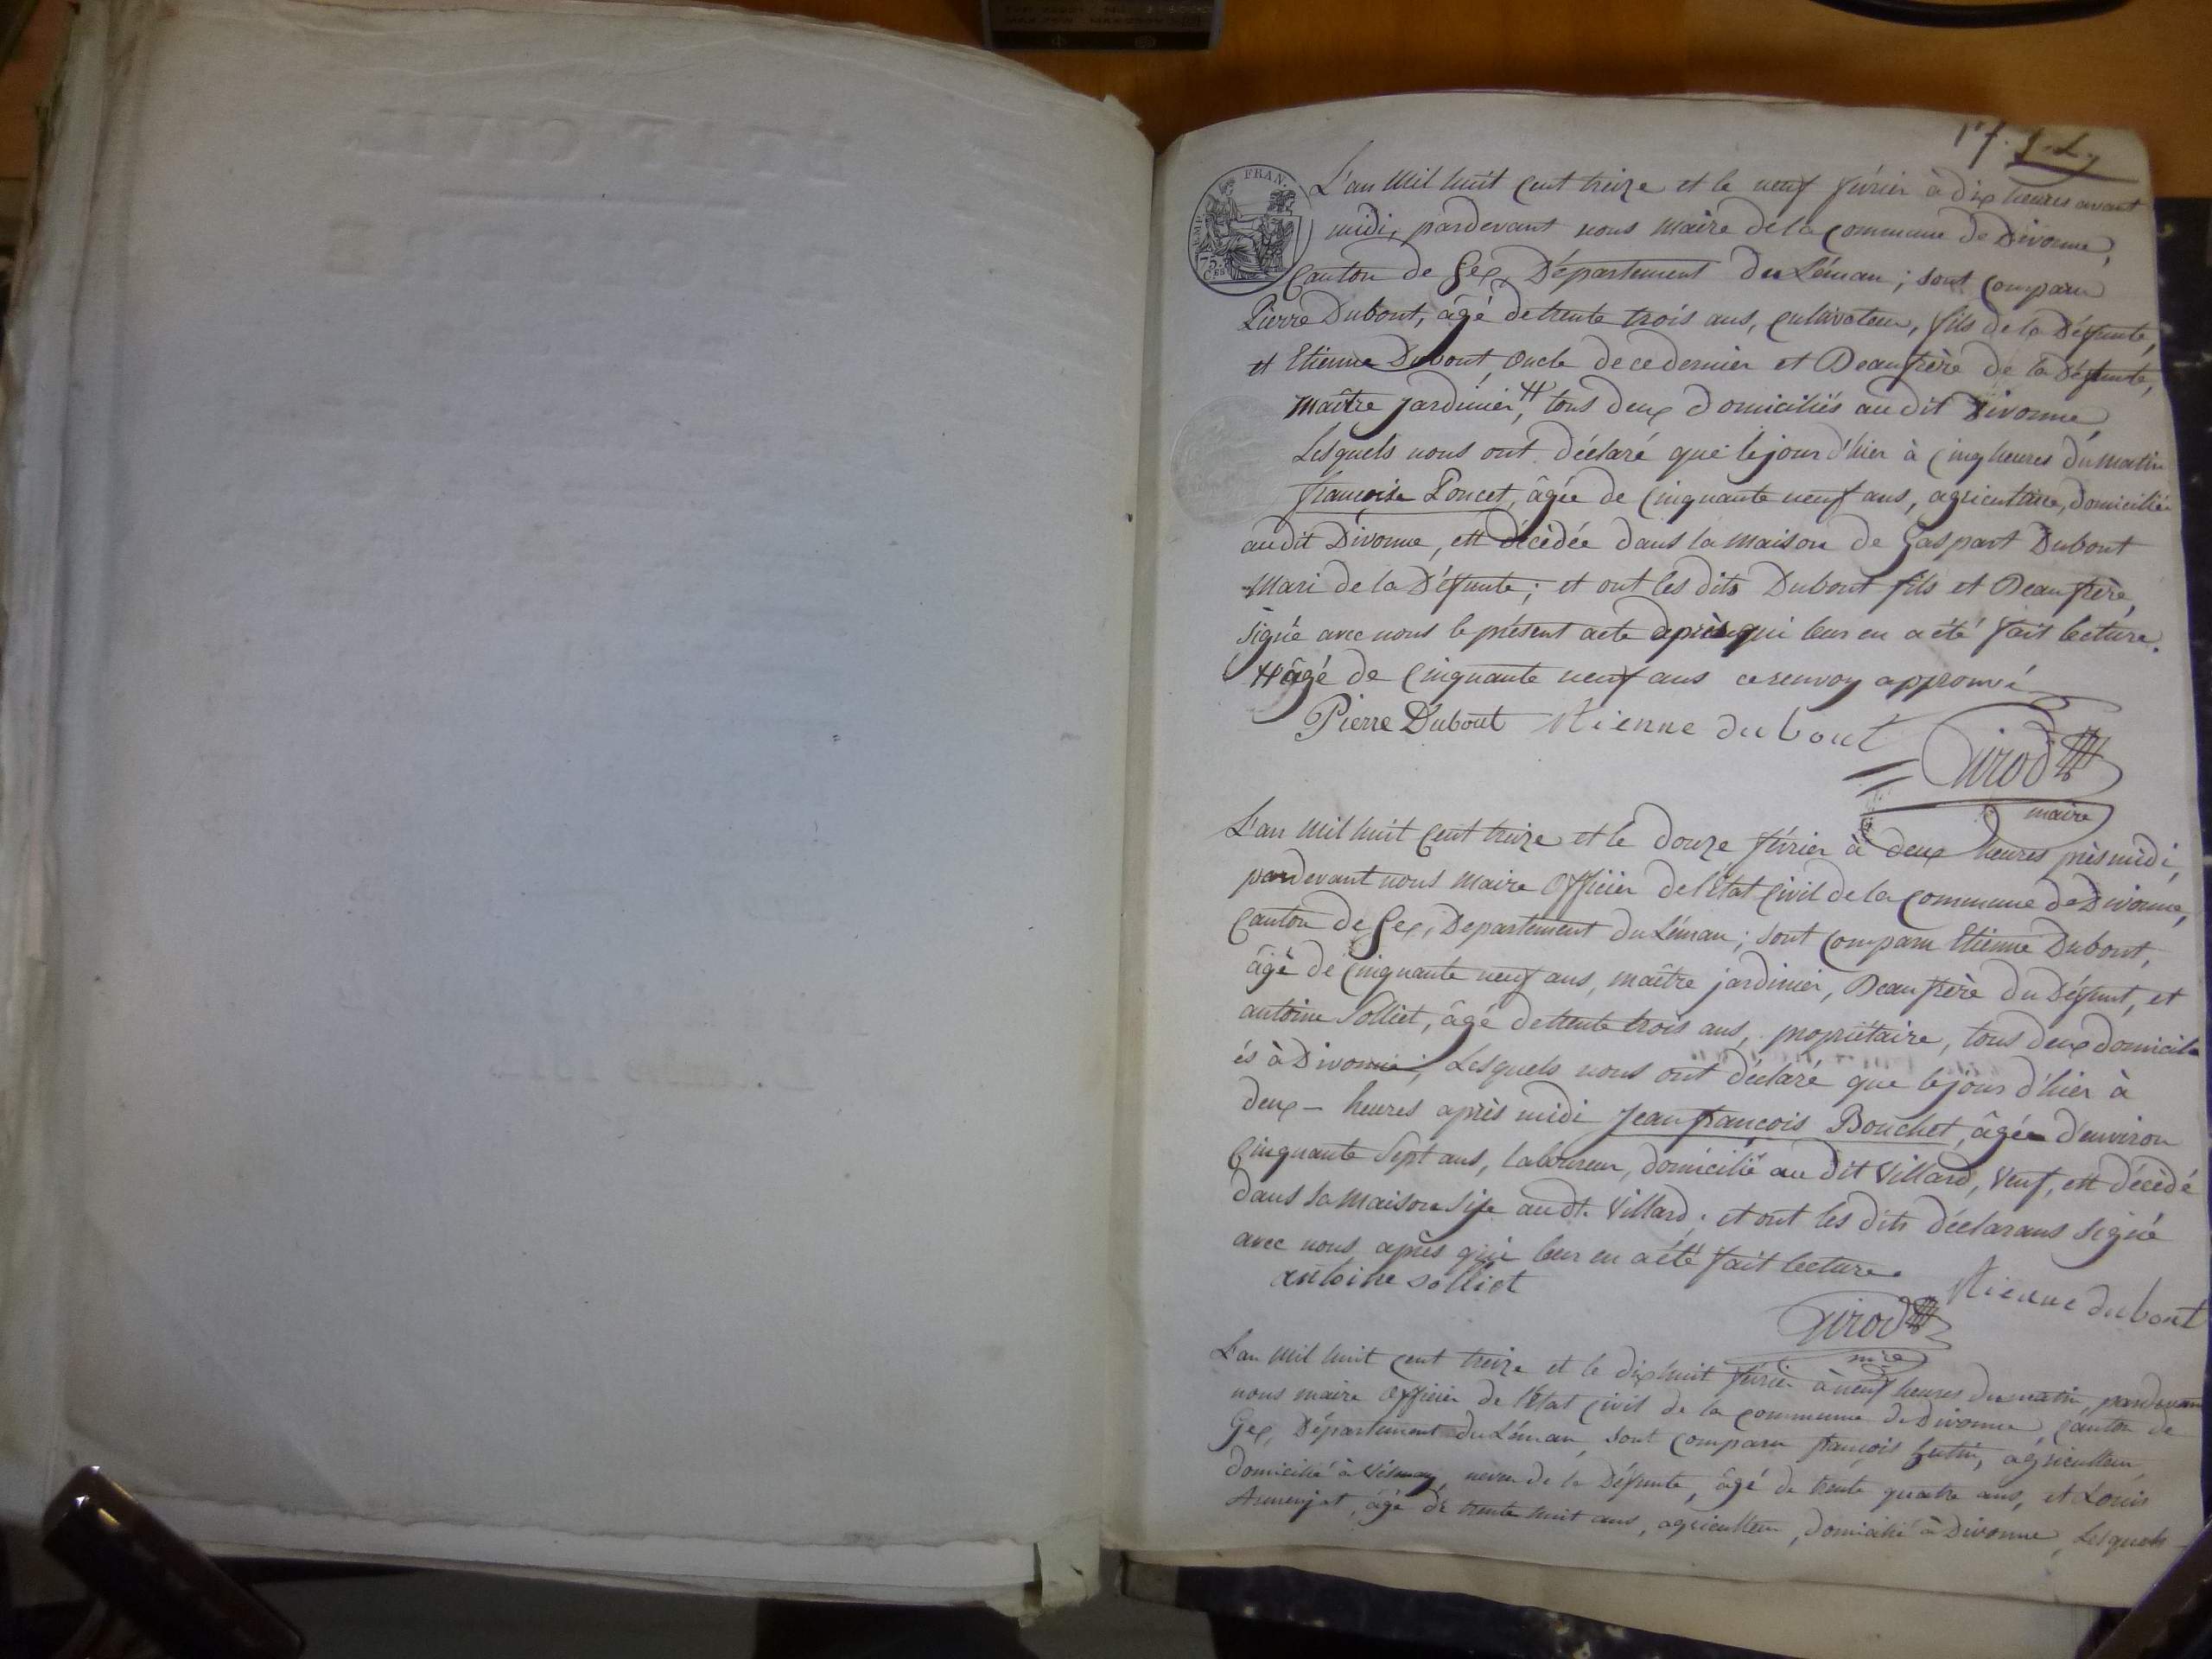 L'an mil huit cent treize et le neuf février à dix heures avant
midi, pardevant nous maire de la commune de Divonne,
Canton de Gex, Département du Léman; sont comparu
Pierre Dubout, âgé de trente trois ans, cultivateur, fils de la Défunte,
et Etienne Dubout, oncle de ce dernier et Beaufrère de la défunte,
maître jardinier, # tous deux domiciliés audit Divonne,
Lesquels nous ont déclaré que le jour d'hier à cinq heures du matin
françoise Poncet, âgée de cinquante neuf ans, agricultrice, domiciliée
audit Divonne, est décèdée dans la maison de Gaspart Dubout
Mari de la Défunte; et ont les dits Dubout fils et Beaufrère,
signé avec nous le présent acte après qui leur en a été fait lecture.
# âgé de cinquante neuf ans ce renvoy approuvé
Pierre Dubout Etienne dubout
Girod
maire
L'an mil huit cent treize et le douze février à deux heures près midi,
pardevant nous maire officier de l'état civil de la commune de Divonne,
Canton de Gex, Departement du Léman; sont comparu Etienne Dubout,
âgé de cinquante neuf ans, maître jardinier, Beaufrère du Défunt, et
antoine Solliet, âgé de trente trois ans, propriétaire, tous deux domicili
és à Divonne; Lesquels nous ont déclaré que le jour d'hier à
deux – heures après midi Jean françois Bouchet, âgée d'environ
cinquante sept ans, laboureur, domicilié au dit Villard, veuf, est décèdé
dans sa maison sise audt. Villard; et ont les dits déclarans signé
avec nous après qui leur en a été fait lecture.
antoine solliet
Etienne dubout
Girod
mre
L'an mil huit cent treize et le dix huit février à neuf heures du matin pardevant
nous maire officier de l'état civil de la commune de Divonne, canton de
Gex, Département du Léman, sont comparu françois agriculteur
domicilié à neveu de la Défunte, âgé de trente quatre ans, et Louis
âgé de trente huit ans, agriculteur, domicilié à Divonne, Lesquels